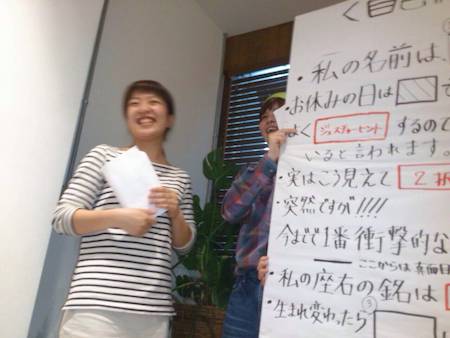 く自己
・私の名前は、
・お休みの日は
よく ジェスチャーヒント するので
いると言われます。
・実はこう見えて 2択
・突然ですが!!!!
今まで1番衝撃的な
ここからは真面目
・私の座右の銘は
・生まれ変わったら ③